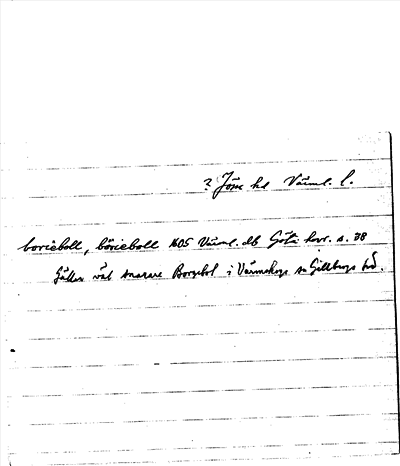 ? Jösse hd Värml. l.
borieboll, börieboll 1605 Värml. db Göta hovr. s. 38
Gäller väl snarare Borgebol i Värmskogs sn Gillbergs hd.